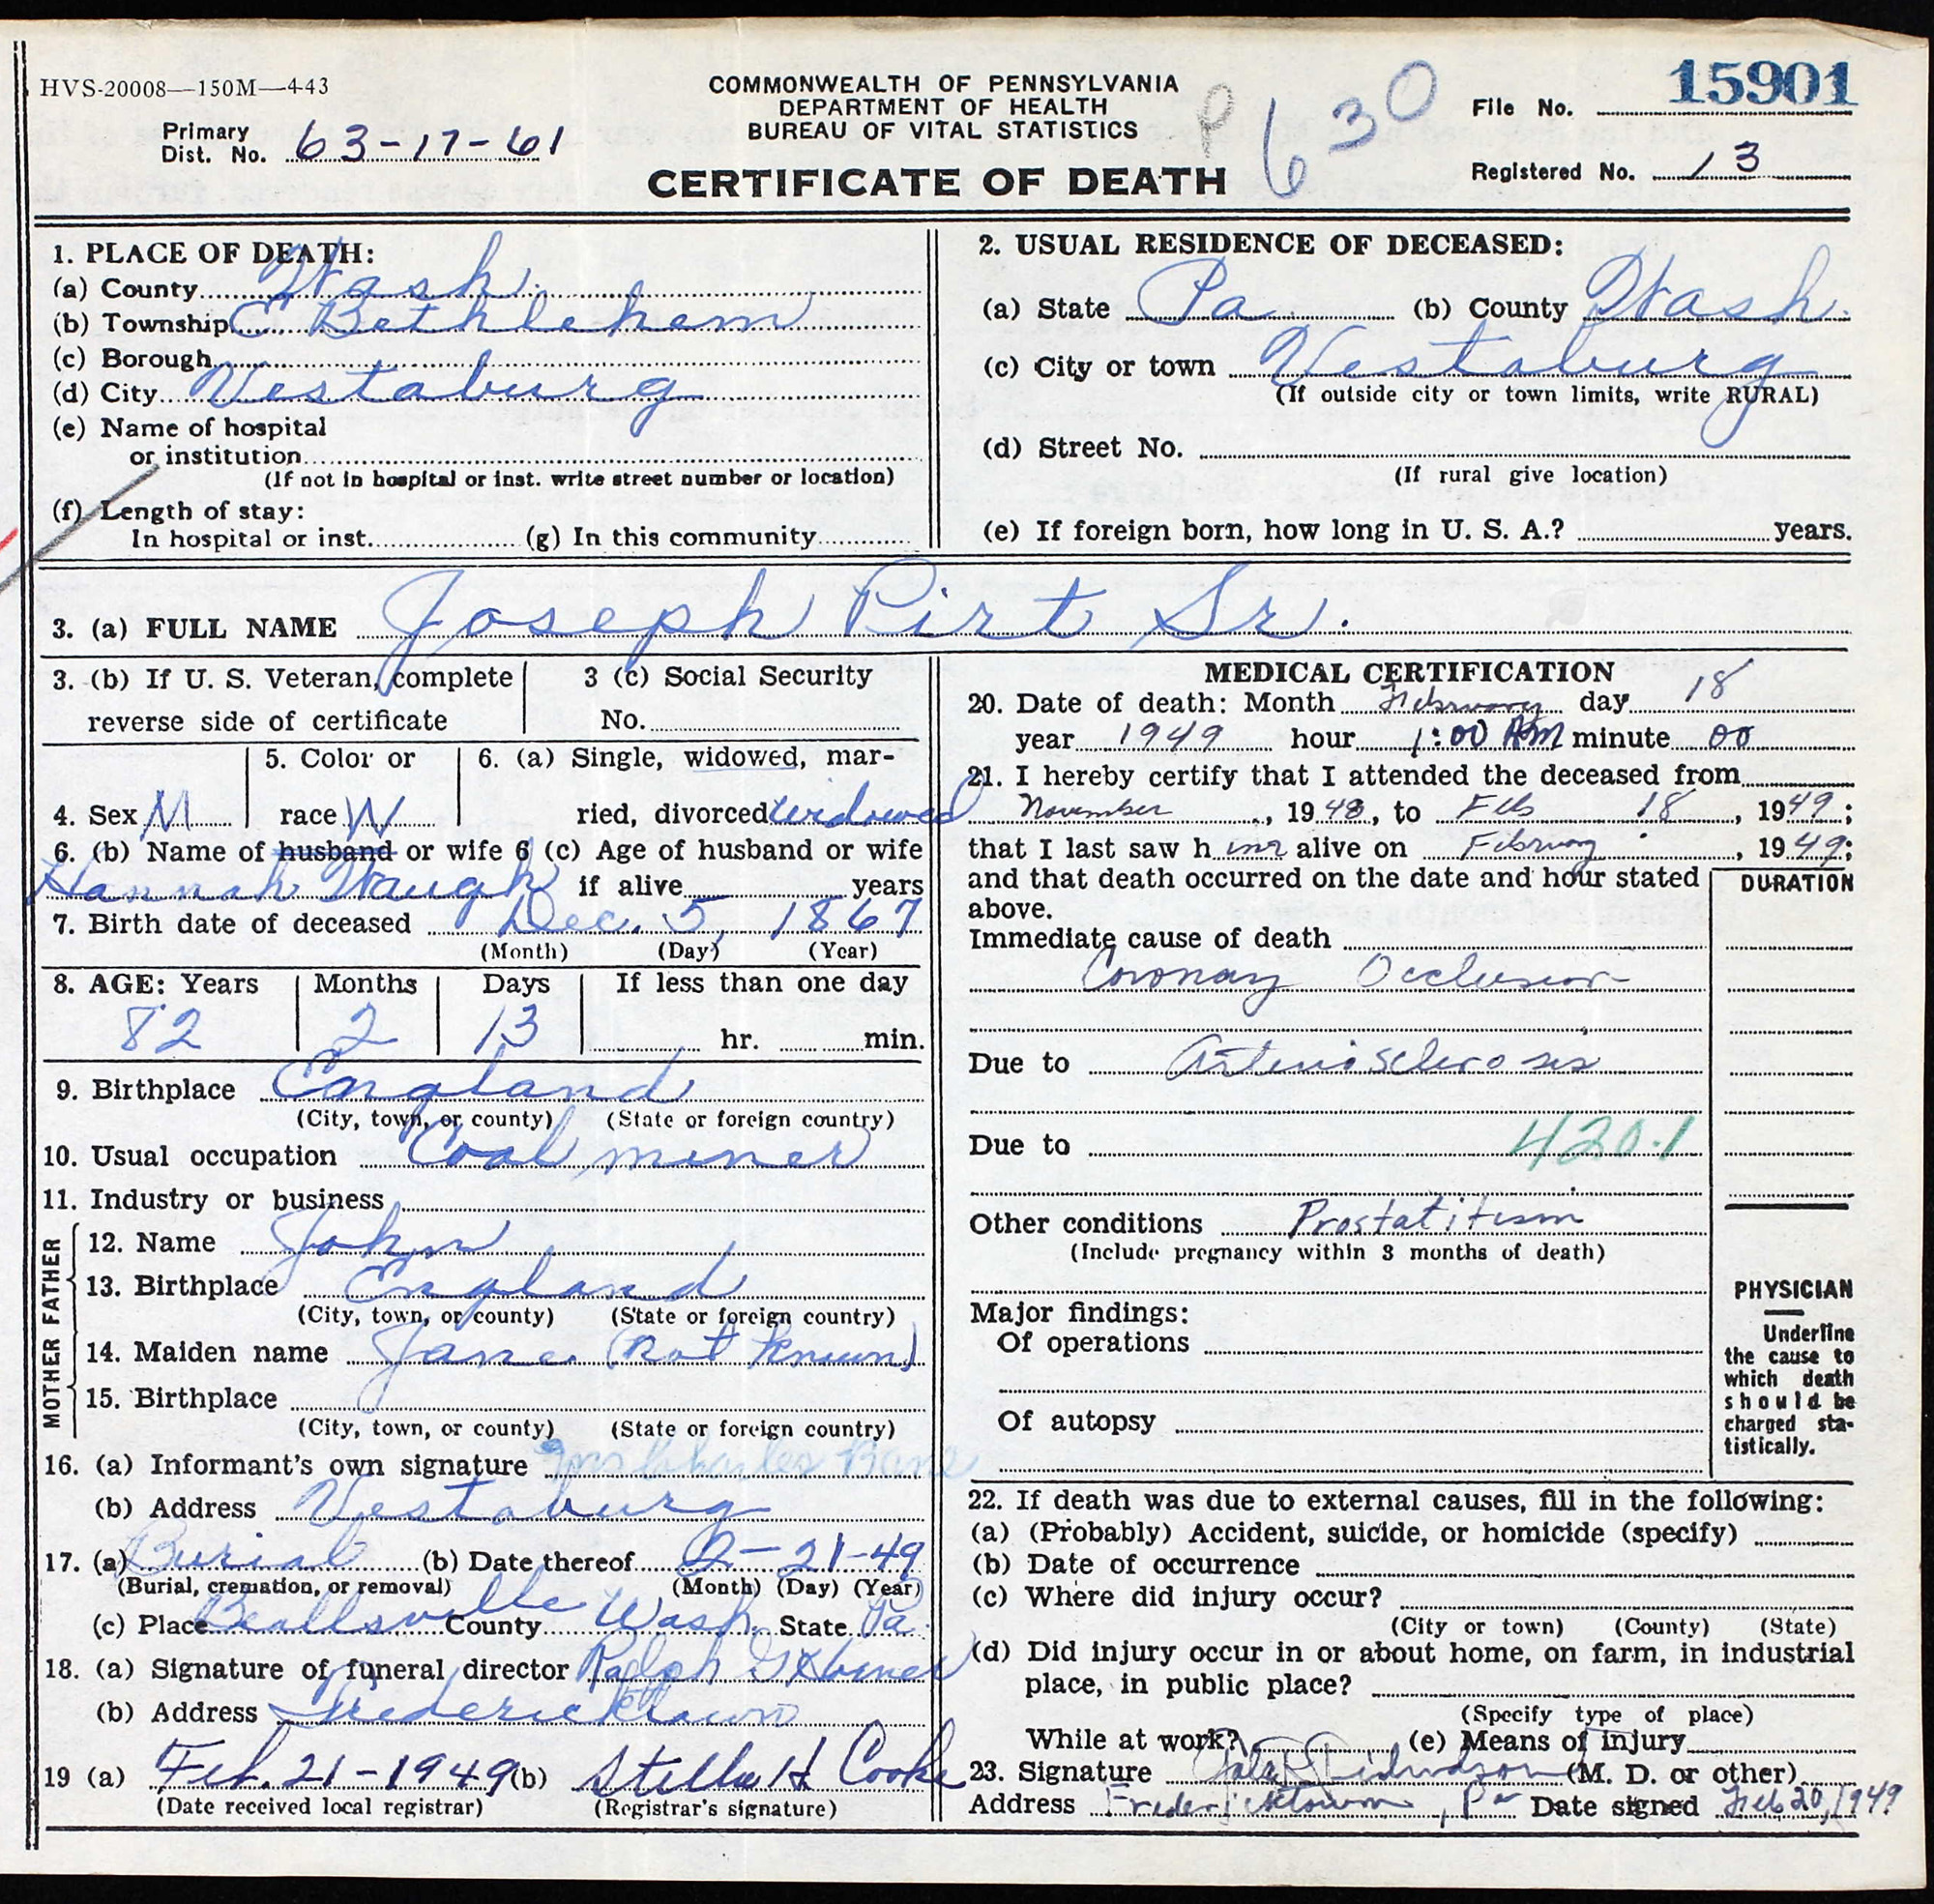 HVS-20008—150M—4-43
COMMONWEALTH OF PENNSYLVANIA
DEPARTMENT OF HEALTH
BUREAU OF VITAL STATISTICS
CERTIFICATE OF DEATH
P 630
File No. 15901
Primary
Dist. No. 63-17-61
Registered No. 13
1. PLACE OF DEATH:
(a) County Wash.
(b) Township E Bethlehem
(c) Borough
(d) City Vestaburg
(e) Name of hospital
or institution
(If not in hospital or inst. write street number or location)
(f) Length of stay:
In hospital or inst. (g) In this community
2. USUAL RESIDENCE OF DECEASED:
(a) State Pa. (b) County Wash.
(c) City or town Vestaburg
(If outside city or town limits, write RURAL)
(d) Street No.
(If rural give location)
(e) If foreign born, how long in U. S. A.? years.
3. (a) FULL NAME Joseph Pirt Sr.
3. (b) If U. S. Veteran, complete
reverse side of certificate
3 (c) Social Security
No.
4. Sex M
5. Color or
race W
6. (a) Single, widowed, mar-
ried, divorced widowed
6. (b) Name of husband or wife
Hannah Waugh
6 (c) Age of husband or wife
if alive years
7. Birth date of deceased Dec. 5, 1867
(Month) (Day) (Year)
8. AGE: Years Months Days If less than one day
82 2 13 hr. min.
9. Birthplace England
(City, town, or county) (State or foreign country)
10. Usual occupation Coal miner
11. Industry or business
FATHER
12. Name John
13. Birthplace England
(City, town, or county) (State or foreign country)
MOTHER
14. Maiden name Jane (not known)
15. Birthplace
(City, town, or county) (State or foreign country)
16. (a) Informant's own signature Mrs Charles Bane
(b) Address Vestaburg
17. (a) Burial (b) Date thereof 2-21-49
(Burial, cremation, or removal) (Month) (Day) (Year)
(c) Place Beallsville County Wash. State Pa.
18. (a) Signature of funeral director Ralph G
(b) Address Fredericktown
19 (a) Feb. 21-1949 (b) Stella H Cooke
(Date received local registrar) (Registrar's signature)
MEDICAL CERTIFICATION
20. Date of death: Month February day 18
year 1949 hour 1:00 AM minute 00
21. I hereby certify that I attended the deceased from
November, 1948, to Feb 18, 1949;
that I last saw h im alive on February, 1949;
and that death occurred on the date and hour stated
above.
DURATION
Immediate cause of death
Coronary Occlusion
Due to Arteriosclerosis
Due to 420.1
Other conditions Prostatitism
(Include pregnancy within 3 months of death)
Major findings:
Of operations
Of autopsy
PHYSICIAN
Underline
the cause to
which death
should be
charged sta-
tistically.
22. If death was due to external causes, fill in the following:
(a) (Probably) Accident, suicide, or homicide (specify)
(b) Date of occurrence
(c) Where did injury occur?
(City or town) (County) (State)
(d) Did injury occur in or about home, on farm, in industrial
place, in public place?
(Specify type of place)
While at work? (e) Means of injury
23. Signature (M. D. or other)
Address Fredericktown, Pa Date signed Feb 20, 1949